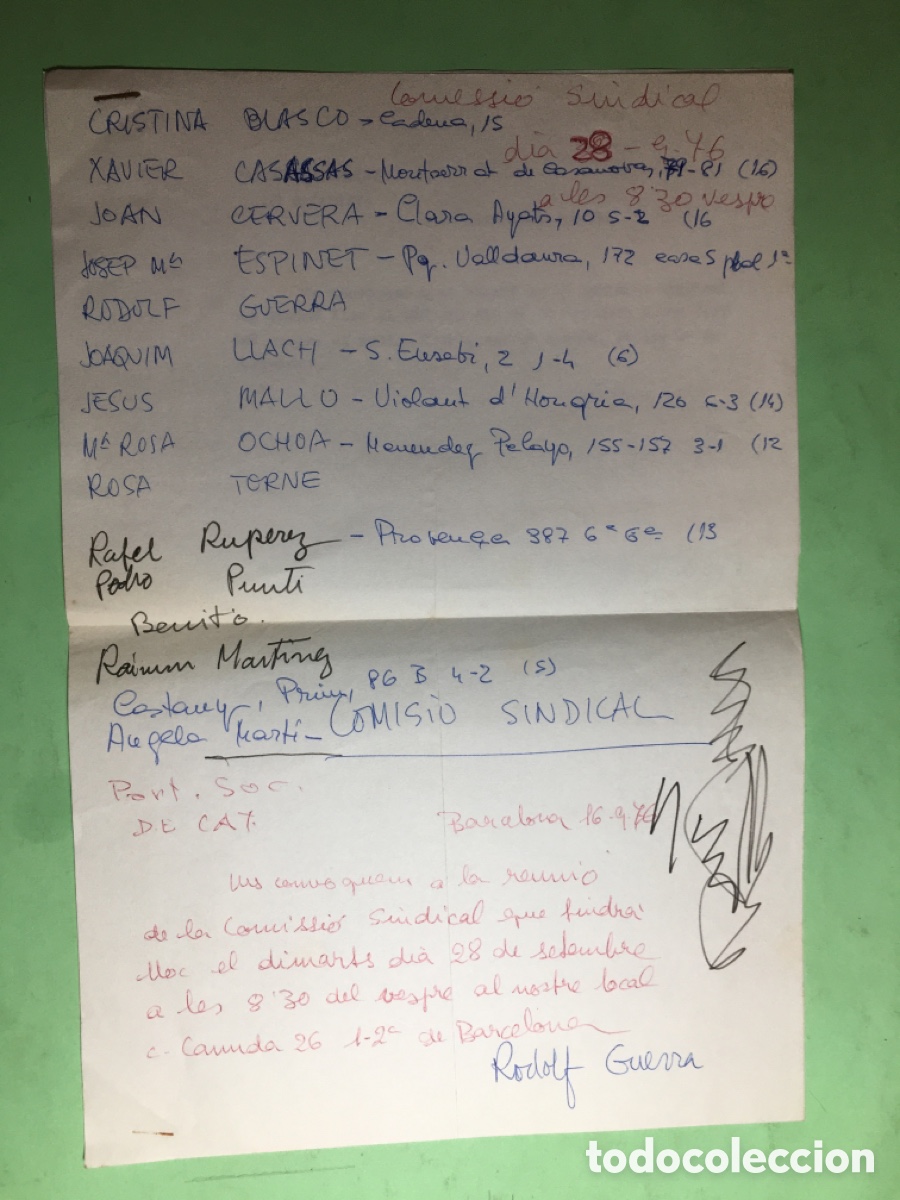 Comessió Sindical
dia 28 - 9 - 76
a les 8'30 vespre
CRISTINA BLASCO > Cadena, 15
XAVIER CASASSAS - Montserrat de Casanovas, 79-81 (16)
JOAN CERVERA - Clara Ayats, 10 5-2 (16
JOSEP Mª ESPINET - Pg. Valldaura, 172 casa 5 1ª
RODOLF GUERRA
JOAQUIM LLACH - S. Eusebi, 2 1-4 (6)
JESUS MALLO - Violant d'Hongria, 120 6-3 (14)
Mª ROSA OCHOA - Menendez Pelayo, 155-157 3-1 (12
ROSA TORNE
Rafel Ruperez - Provença 387 6ª 6ª (13
Pedro Punti
Benito.
Raimon Martínez
Castany, Prim, 86 B 4-2 (5)
Angela Martí - COMISIÓ SINDICAL
Part. Soc.
DE CAT.
Barcelona 16-9-76
Us convoquem a la reunió
de la Comissió Sindical que tindrà
lloc el dimarts dia 28 de setembre
a les 8'30 del vespre al nostre local
c. Canuda 26 1-2ª de Barcelona
Rodolf Guerra
todocoleccion